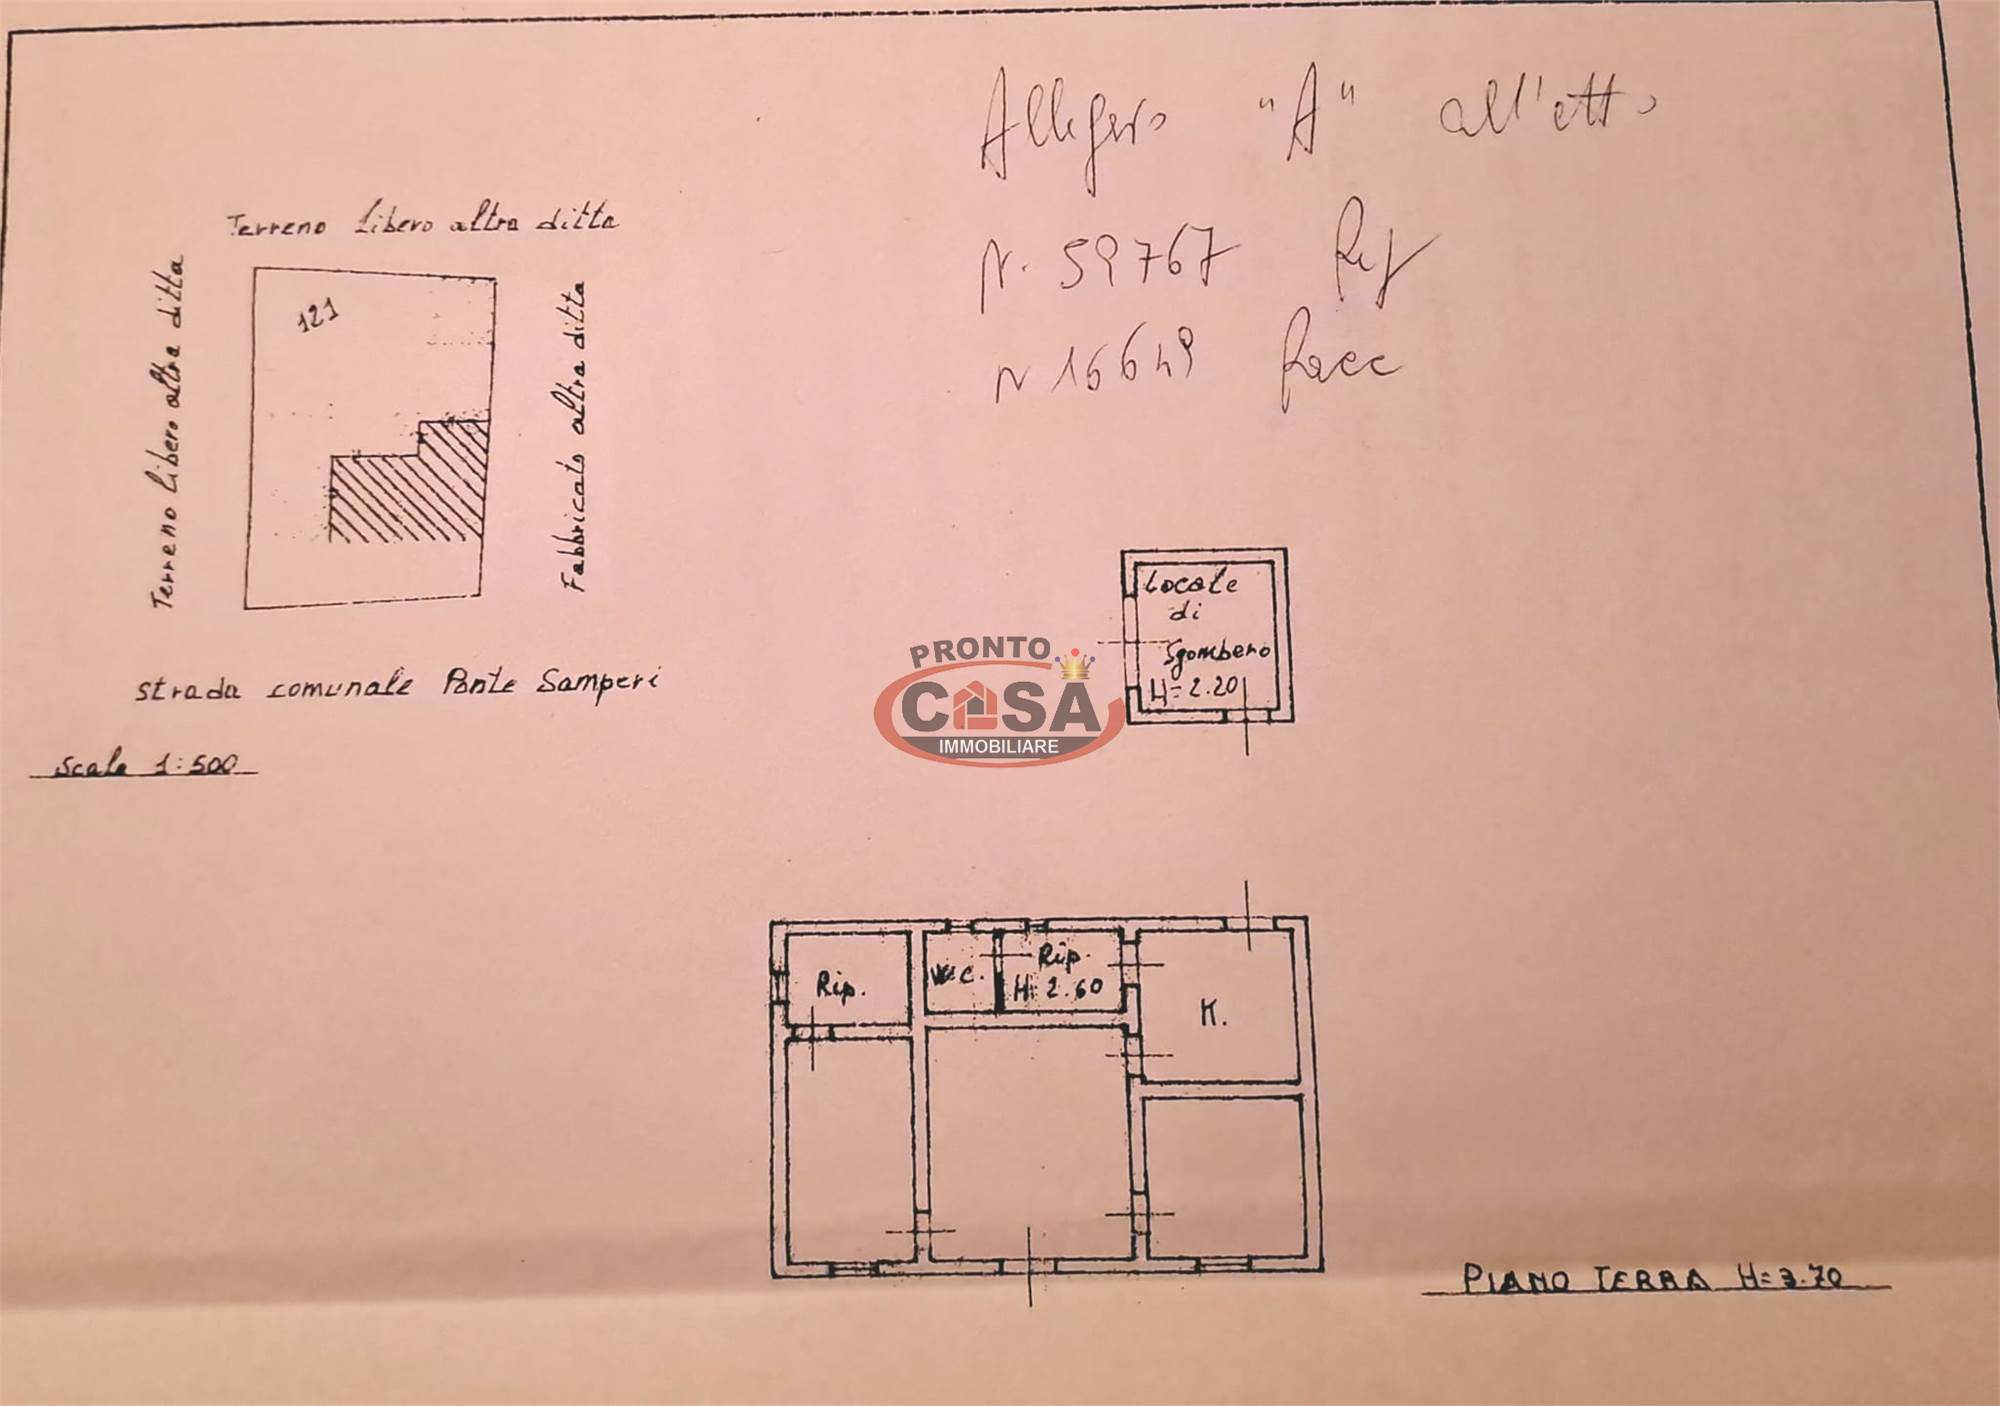 Allegato "A" all'atto
N. 59767 Rep
N 16649 Racc
Terreno libero altra ditta
Terreno libero altra ditta
121
Fabbricato altra ditta
strada comunale Ponte Samperi
Scala 1:500
Locale
di
Sgombero
H=2.20
PRONTO
CASA
IMMOBILIARE
Rip.
W.C.
Rip.
H=2.60
K.
PIANO TERRA H=3.70